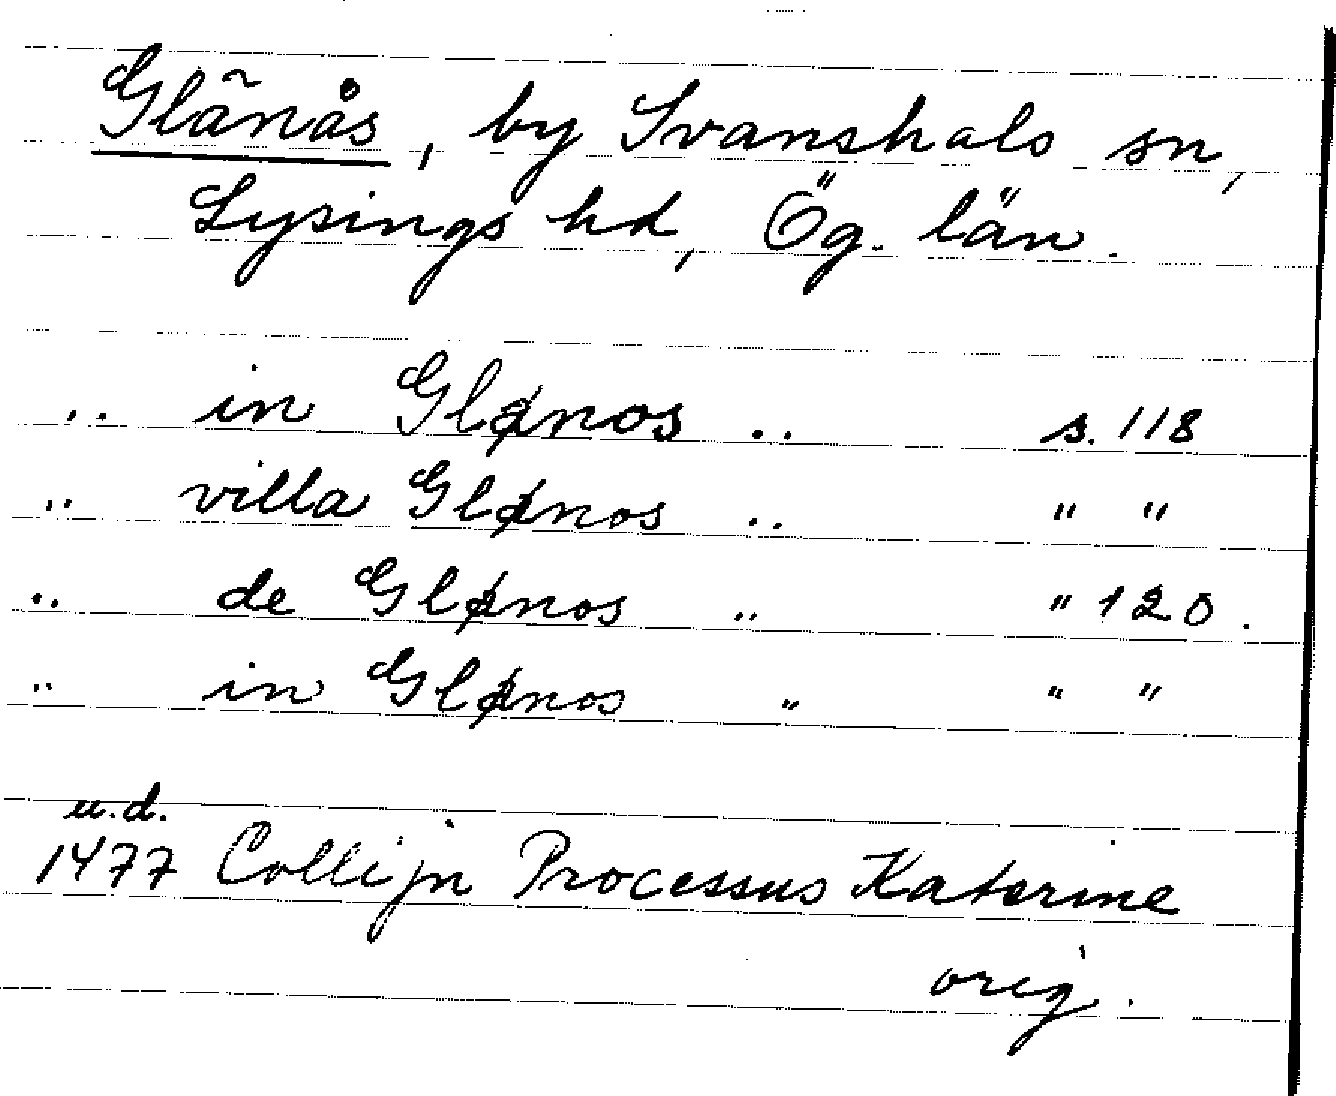 Glänås, by Svanshals sn,
Lysings hd, Ög. län.
.. in Glønos .. s. 118
.. villa Glønos .. " "
.. de Glønos .. " 120.
.. in Glønos " " "
u.d.
1477 Collijn Processus Katerine
orig.